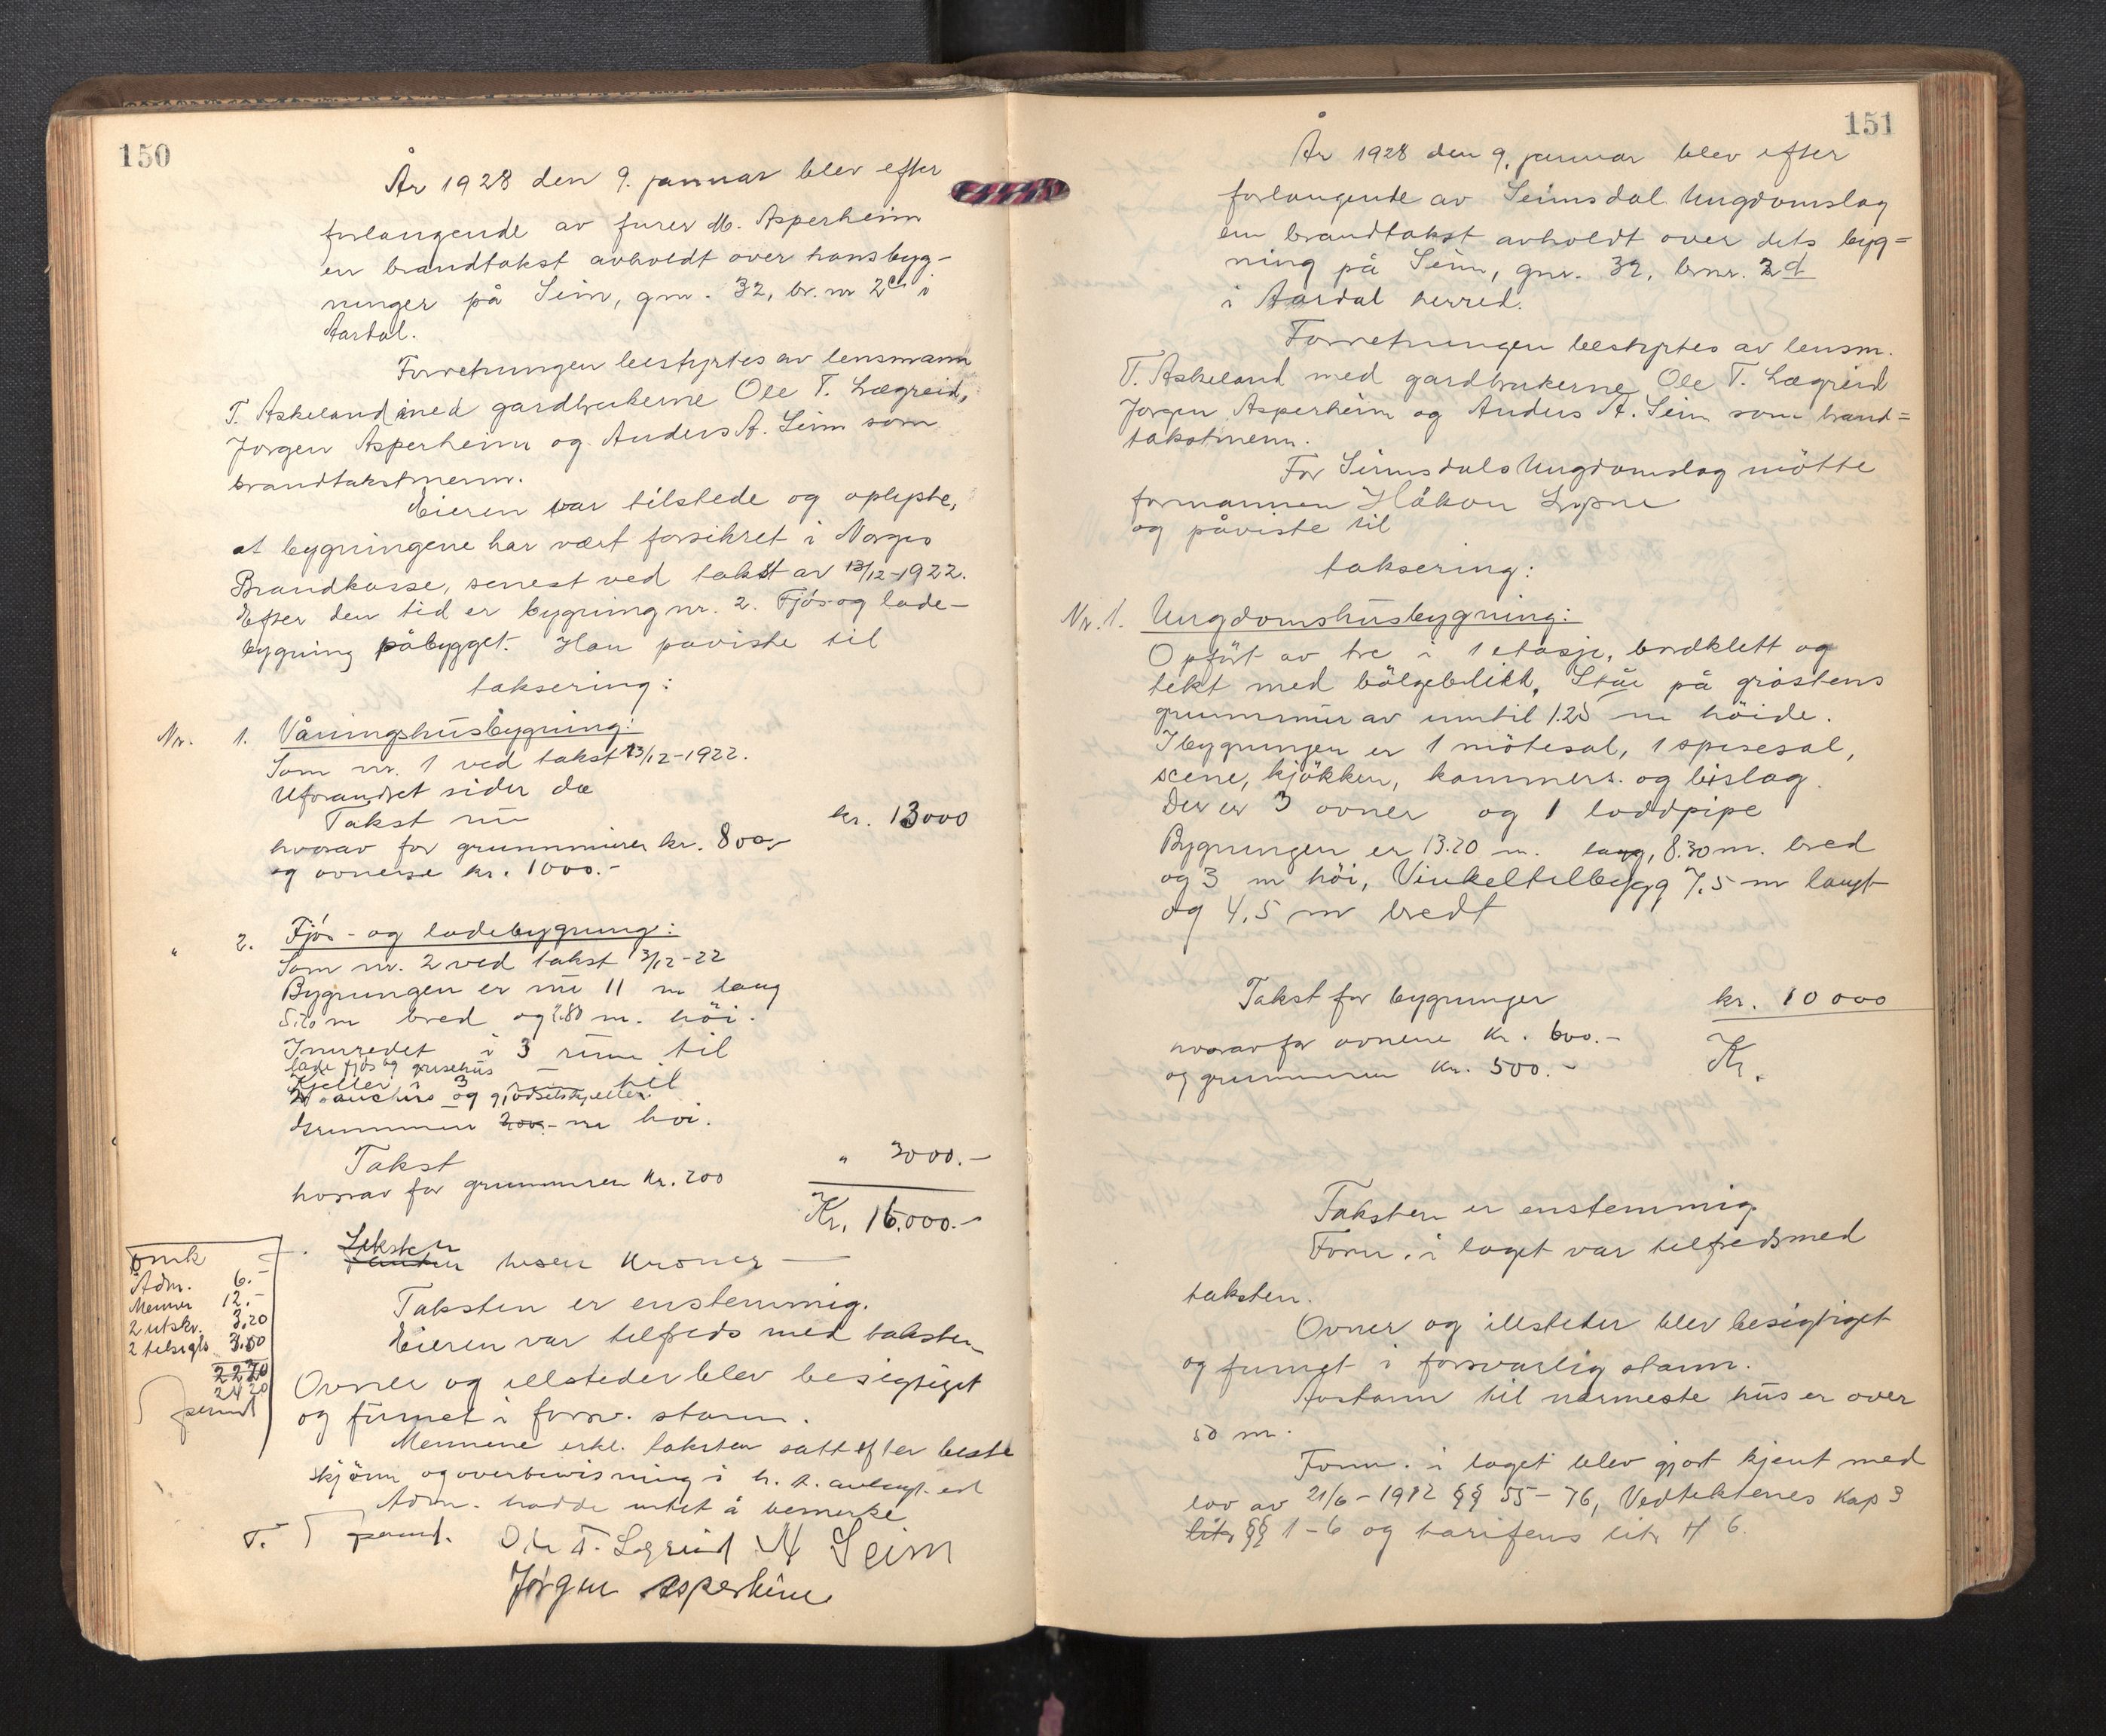 150
År 1928 den 9. januar blev efter
forlangende av furer M. Asperheim
en brandtakst avholdt over hans byg-
ninger på Seim, gnr. 32, br. nr 2c i
Aardal.
Forretningen bestyrtes av lensmann
T. Askeland med gardbrukerne Ole T. Lægreid,
Jørgen Asperheim og Anders A. Seim som
brandtakstmenn.
Eieren var tilstede og oplyste,
at bygningene har vært forsikret i Norges
Brandkasse, senest ved takst av 13/12-1922.
Efter den tid er bygning nr. 2. Fjös og lade-
bygning påbygget. Han påviste til
taksering:
Nr. 1. Våningshusbygning:
Som nr. 1 ved takst 13/12-1922.
Uforandret siden da
Takst nu kr. 13000
hvorav for grunnmuren kr. 800,-
og ovnene kr. 1000.-
" 2. Fjös- og ladebygning:
Som nr. 2 ved takst 13/12-22
Bygningen er nu 11 m lang
5.20 m bred og 2.80 m. höi.
Innredet i 3 rum til
lade fjös og grisehus
Kjeller i 3 rum til
og gjödselskjeller.
Grunnmur m höi.
Takst " 3000.-
hvorav for grunnmuren kr. 200
Kr. 16.000.-
Seksten tusen kroner
Taksten er enstemmig.
Eieren var tilfreds med taksten
Ovner og ildsteder blev besigtiget
og funnet i forsv. stann.
Mennene erkl. taksten satt efter beste
skjönn og overbevisning i h. t. avlagt ed
Adm. hadde intet å bemerke
T. permt. Ole T. Lægreid A Seim
Jørgen Asperheim
Omk
Adm. 6.-
Menner 12.-
2 utskr. 3.20
2 tilsigls 3.00
2220
2420
permt
151
År 1928 den 9. januar blev efter
forlangende av Seimsdal Ungdomslag
en brandtakst avholdt over dets byg=
ning på Seim, gnr. 32, brnr. 2d
i Aardal herred.
Forretningen bestyrtes av lensm.
T. Askeland med gardbrukerne Ole T. Lægreid
Jørgen Asperheim og Anders A. Seim som brand=
takstmenn.
For Seimsdals Ungdomslag mötte
formannen Håkon
og påviste til
taksering:
Nr. 1. Ungdomshusbygning:
Opfört av tre i 1 etasje, bordklett og
tekt med bölgeblikk, Står på gråstens
grunnmur av inntil 1.25 m höide.
I bygningen er 1 mötesal, 1 spisesal,
scene, kjökken, kammers. og bislag.
Der er 3 ovner og 1 loddpipe
Bygningen er 13.20 m. lang, 8.30 m. bred
og 3 m höi, Vinkeltilbygg 7,5 m langt
og 4,5 m bredt
Takst for bygninger kr. 10000
hvorav for ovnene kr. 600.- Kr.
og grunnmuren kr. 500.-
Taksten er enstemmig.
Form. i laget var tilfreds med
taksten.
Ovner og ildsteder blev besigtiget
og funnet i forsvarlig stann.
Avstann til nærmeste hus er over
50 m.
Form. i laget blev gjort kjent med
lov av 21/6-1912 §§ 55-76, Vedtektenes Kap 3
litr §§ 1-6 og tarifens litr H 6.